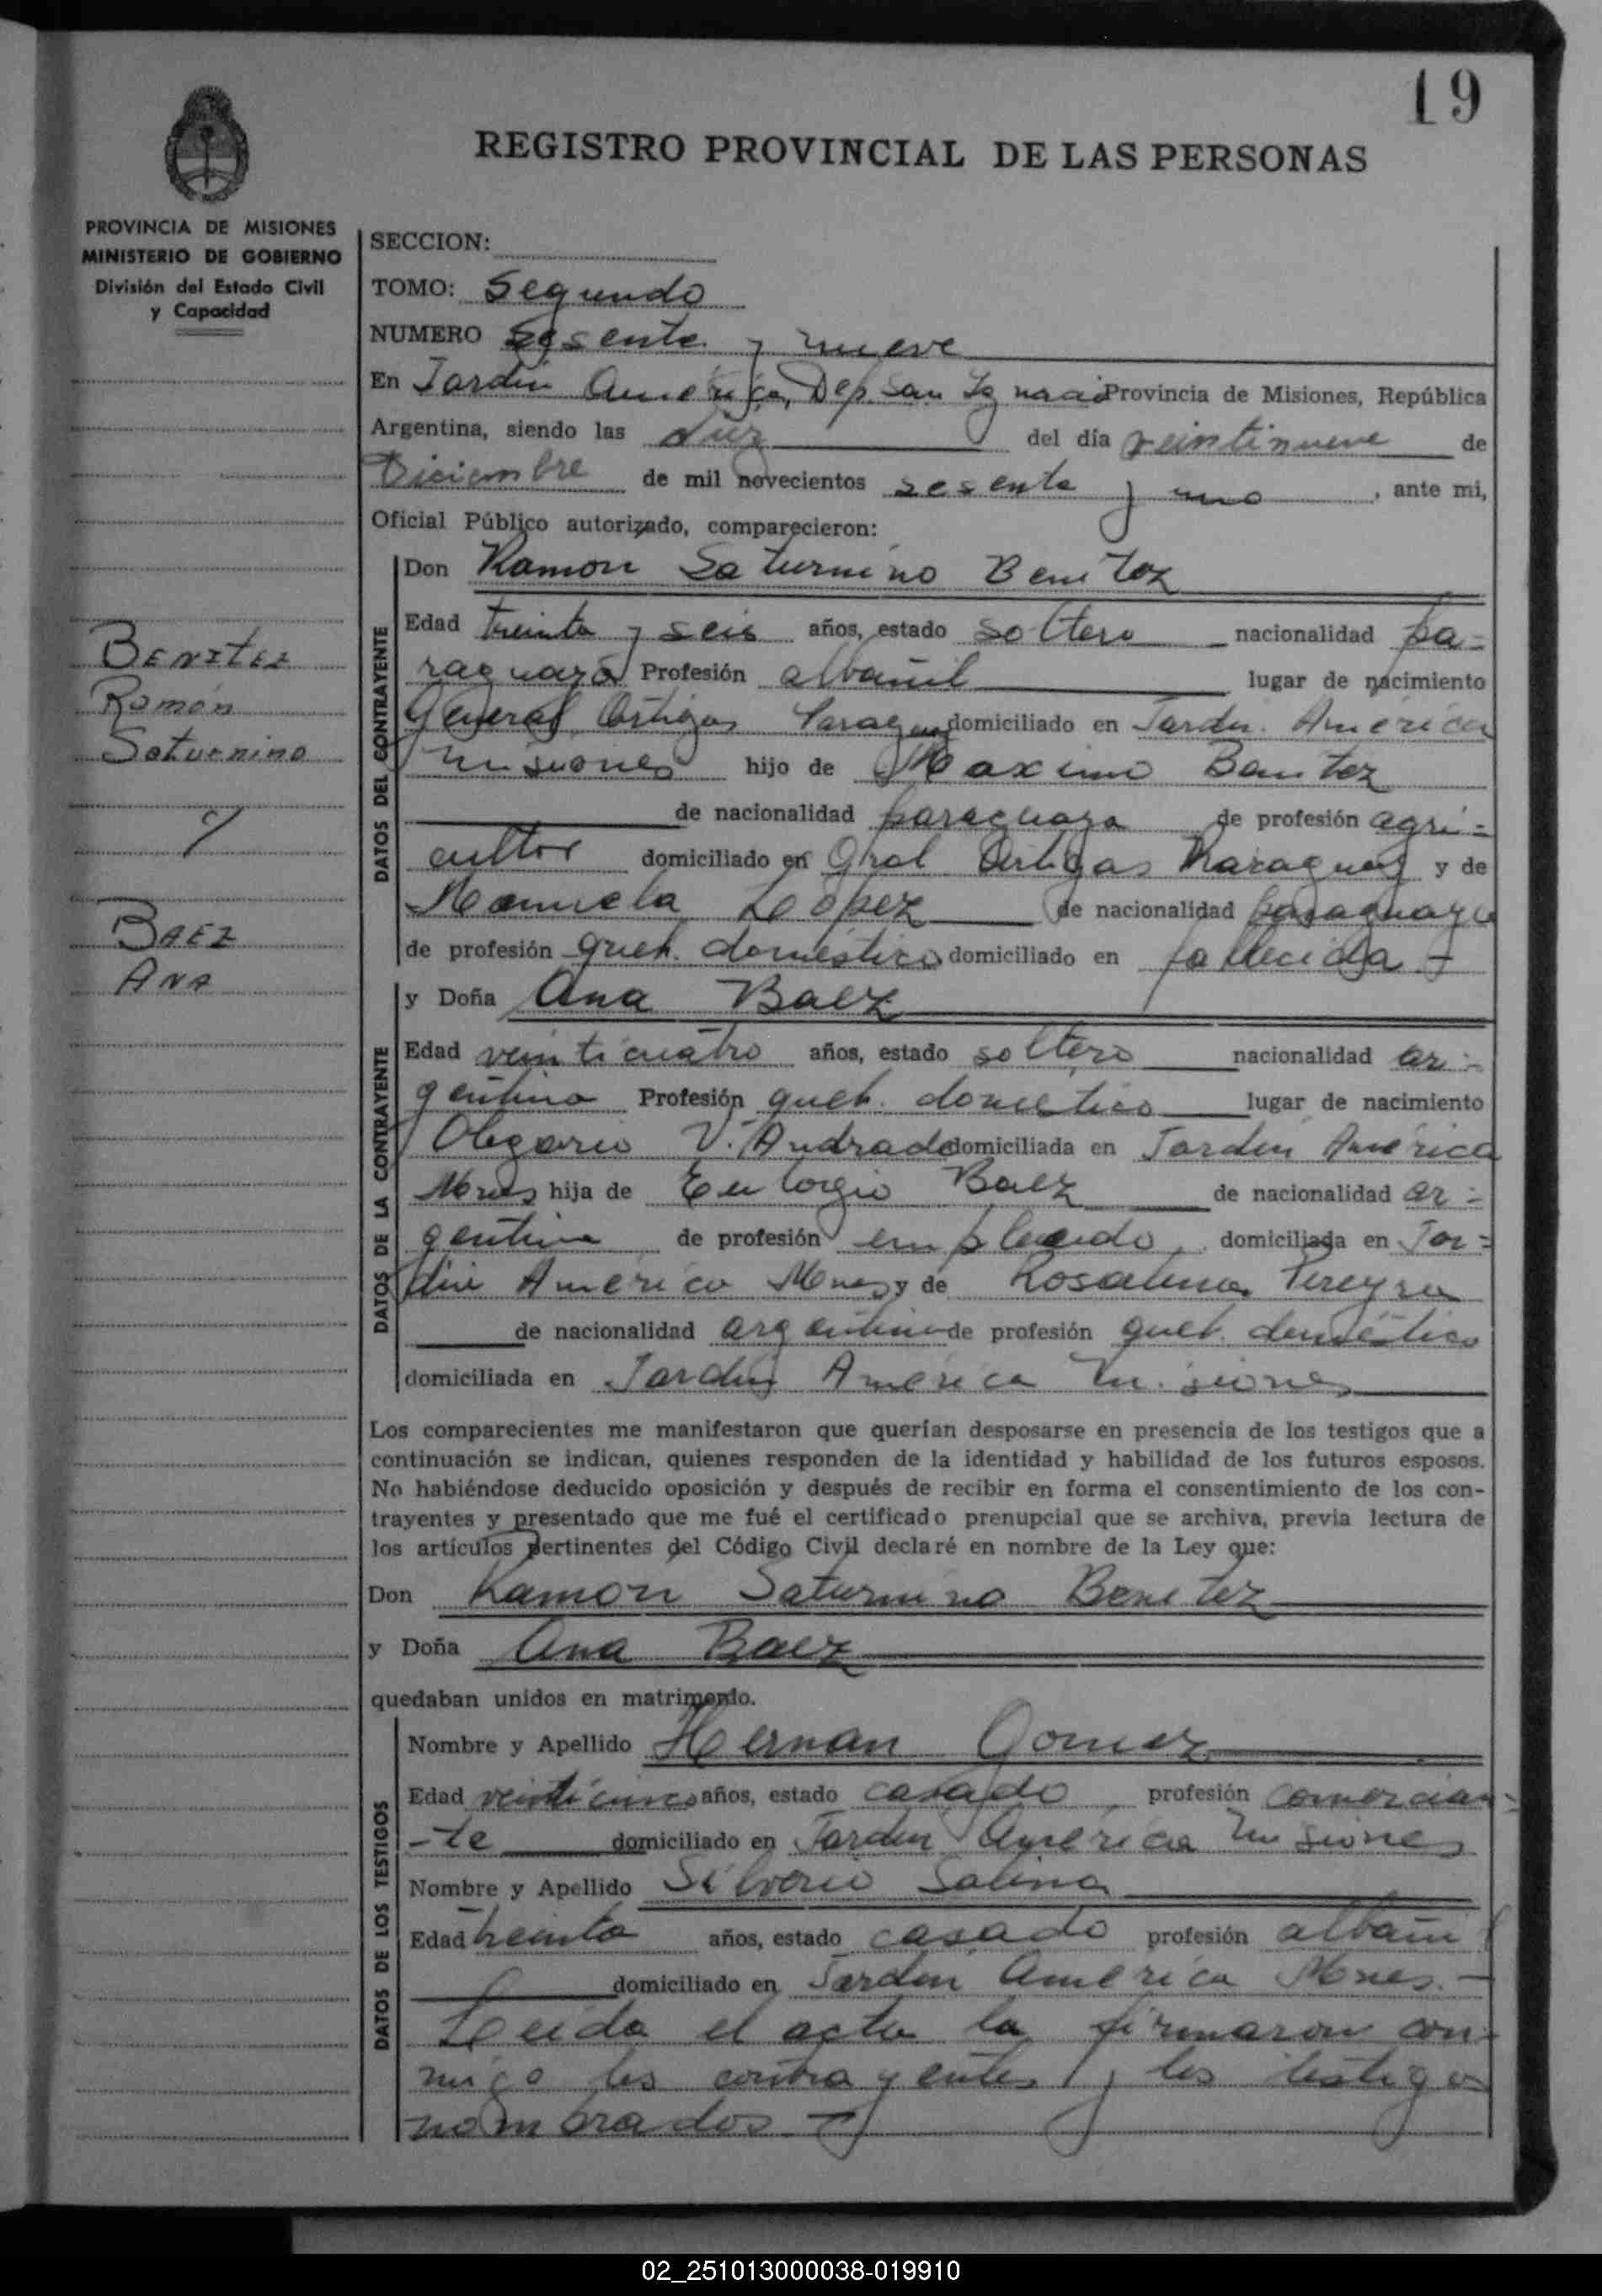 19
REGISTRO PROVINCIAL DE LAS PERSONAS
PROVINCIA DE MISIONES
MINISTERIO DE GOBIERNO
División del Estado Civil
y Capacidad
BENITEZ
Ramón
Saturnino
y
BAEZ
ANA
SECCION:
TOMO: Segundo
NUMERO sesenta y nueve
En Jardin América, Dep. San Ignacio Provincia de Misiones, República
Argentina, siendo las diez del día veintinueve de
Diciembre de mil novecientos sesenta y uno, ante mi,
Oficial Público autorizado, comparecieron:
DATOS DEL CONTRAYENTE
Don Ramon Saturnino Benitez
Edad treinta y seis años, estado soltero nacionalidad pa=
raguaya Profesión albañil lugar de nacimiento
General Artigas Paraguay domiciliado en Jardin América
Misiones hijo de Maximo Benitez
de nacionalidad paraguaya de profesión agri=
cultor domiciliado en Gral Artigas Paraguay y de
Manuela Lopez de nacionalidad paraguaya
de profesión queh. domestico domiciliado en fallecida -
DATOS DE LA CONTRAYENTE
y Doña Ana Baez
Edad veinticuatro años, estado soltera nacionalidad ar=
gentina Profesión queh. domestico lugar de nacimiento
Olegario V. Andrade domiciliada en Jardin América
Mnes hija de Eulogio Baez de nacionalidad ar=
gentina de profesión empleado, domiciliada en Jar=
din América Mnes y de Rosalina Pereyra
de nacionalidad argentina de profesión queh. doméstico
domiciliada en Jardin América Misiones
Los comparecientes me manifestaron que querían desposarse en presencia de los testigos que a
continuación se indican, quienes responden de la identidad y habilidad de los futuros esposos.
No habiéndose deducido oposición y después de recibir en forma el consentimiento de los con-
trayentes y presentado que me fué el certificado prenupcial que se archiva, previa lectura de
los artículos pertinentes del Código Civil declaré en nombre de la Ley que:
Don Ramon Saturnino Benitez
y Doña Ana Baez
quedaban unidos en matrimonio.
DATOS DE LOS TESTIGOS
Nombre y Apellido Hernan Gomez
Edad veinticinco años, estado casado profesión comercian=
-te domiciliado en Jardin América Misiones
Nombre y Apellido Silverio Salina
Edad treinta años, estado casado profesión albañil
domiciliado en Jardin América Mnes. -
Leida el acta la firmaron con-
migo los contrayentes y los testigos
nombrados -
02_251013000038-019910